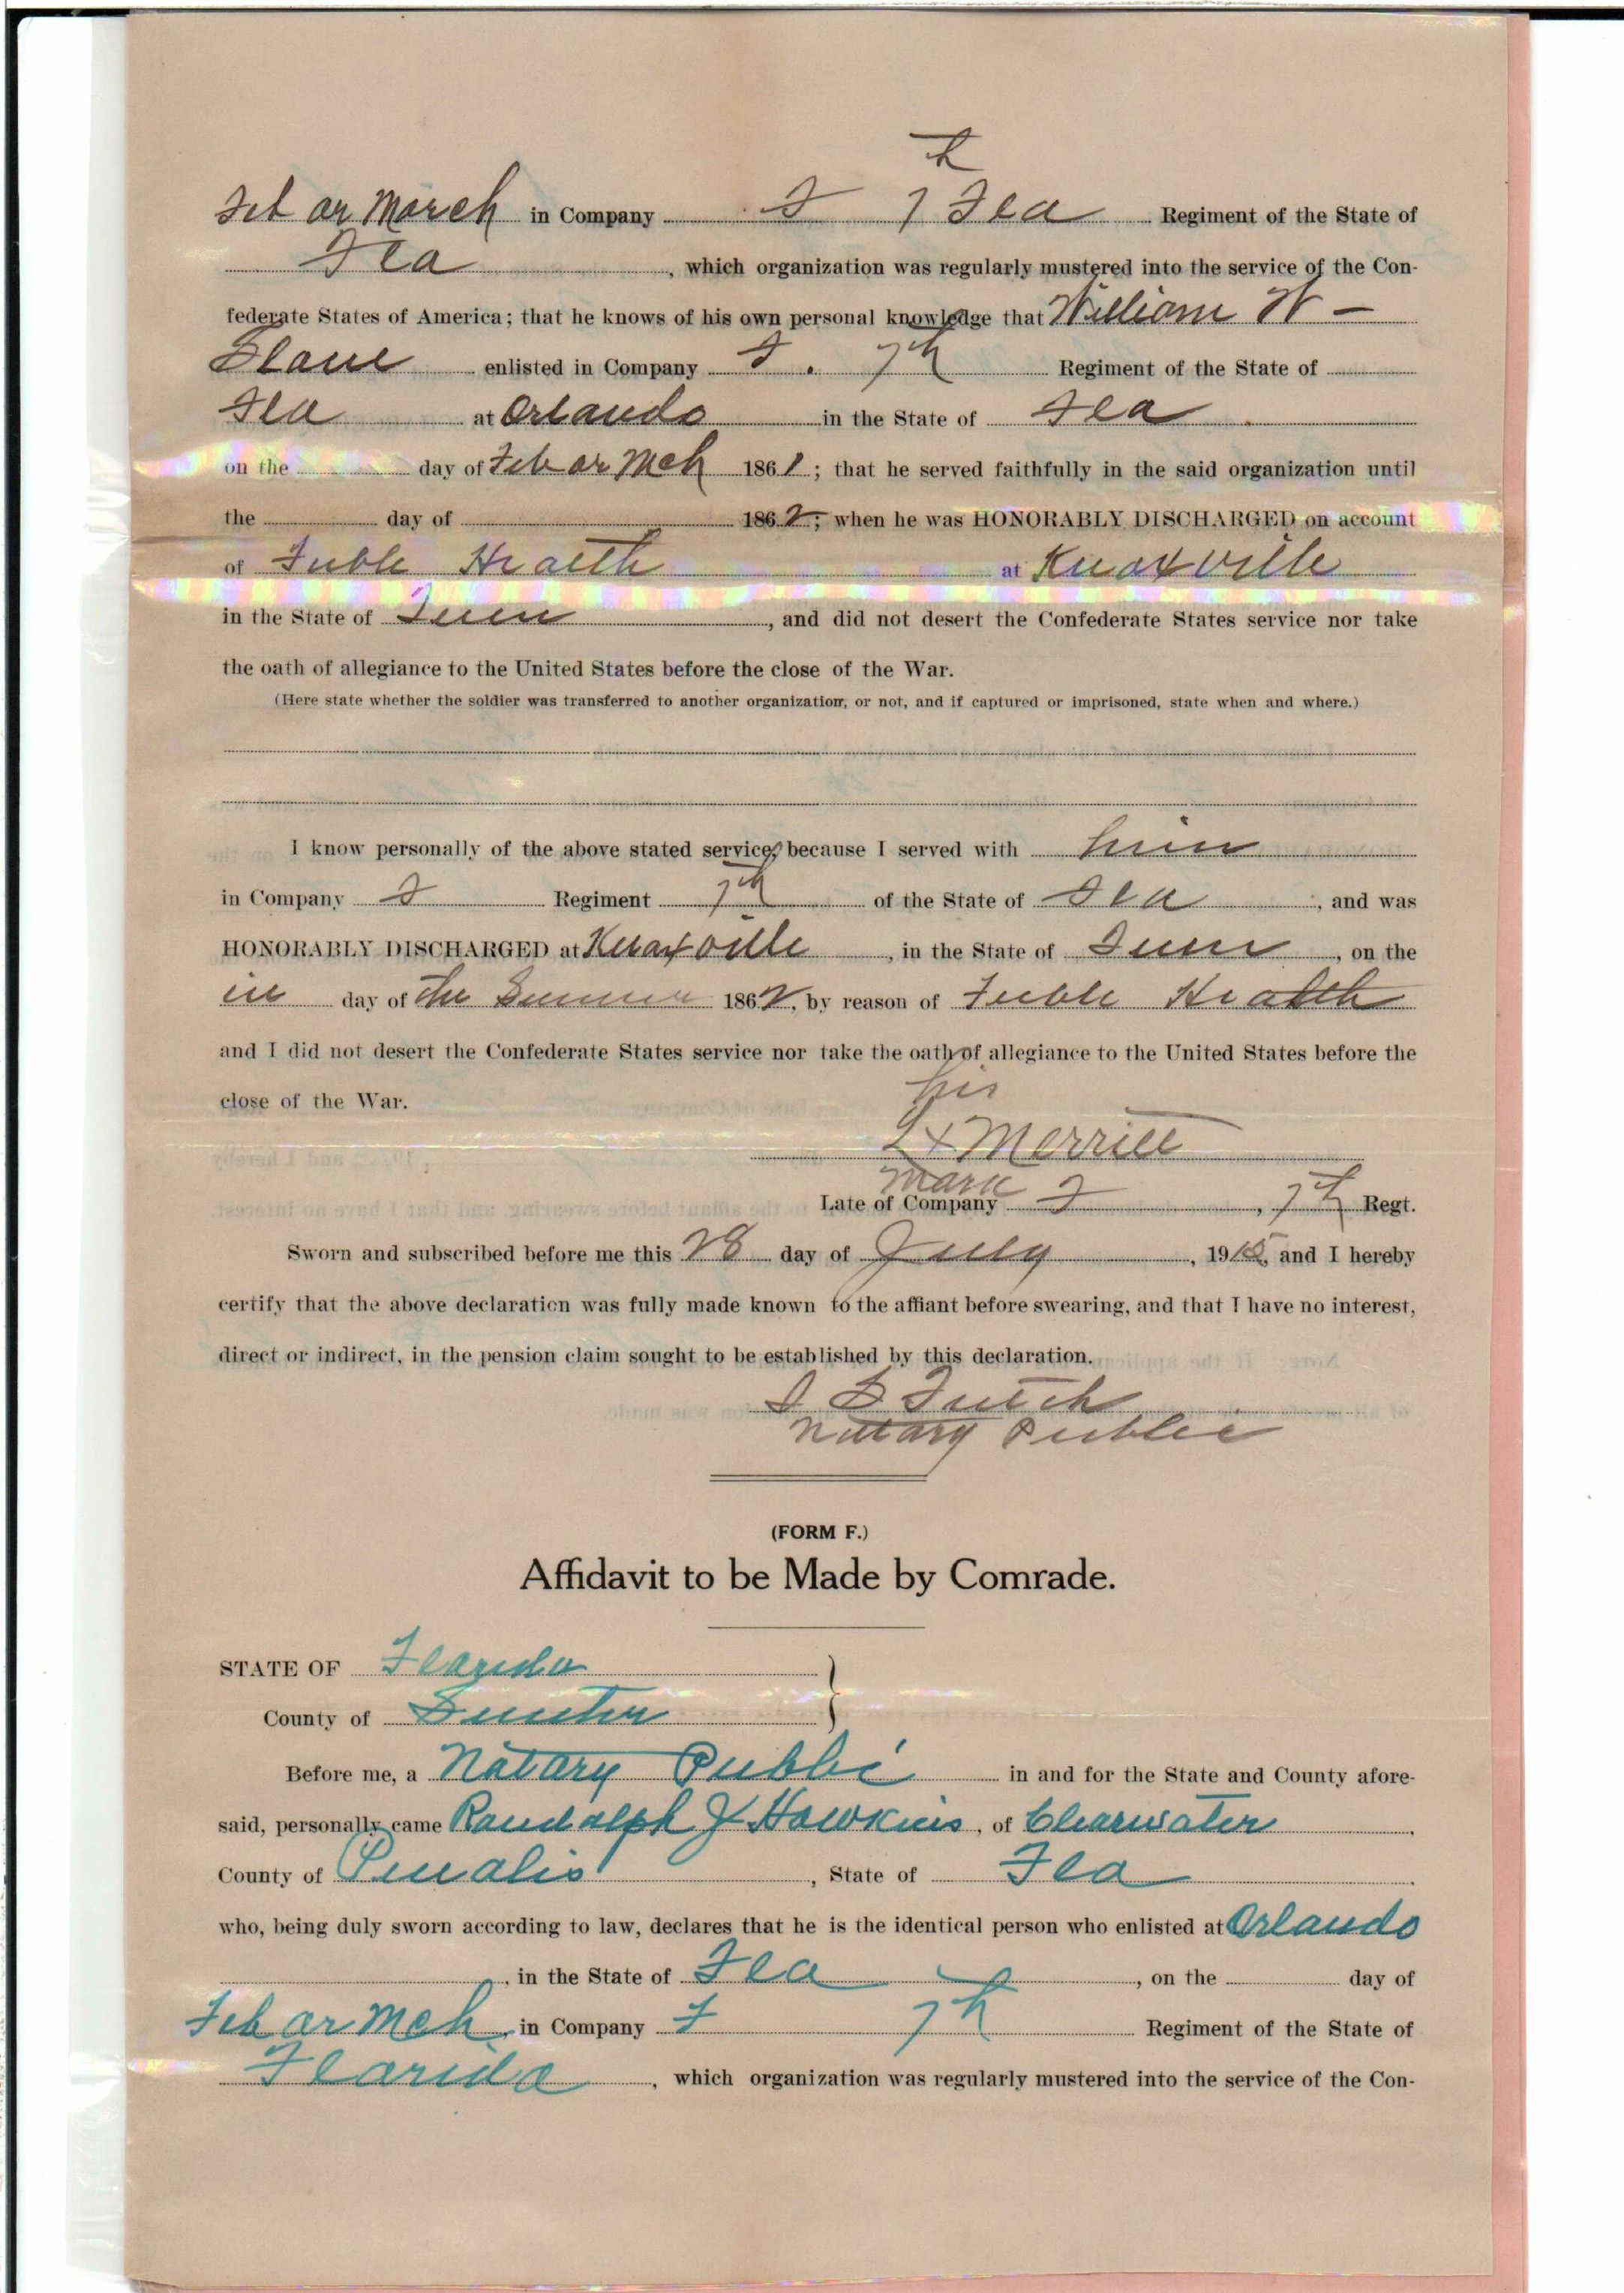 th
Feb or March in Company F 7 Fla Regiment of the State of
Fla, which organization was regularly mustered into the service of the Con-
federate States of America; that he knows of his own personal knowledge that William W -
Slane enlisted in Company F. 7th Regiment of the State of
Fla at Orlando in the State of Fla
on the day of Feb or Mch 1861; that he served faithfully in the said organization until
the day of 1862; when he was HONORABLY DISCHARGED on account
of Feble Health at Knoxville
in the State of Tenn, and did not desert the Confederate States service nor take
the oath of allegiance to the United States before the close of the War.
(Here state whether the soldier was transferred to another organization, or not, and if captured or imprisoned, state when and where.)
I know personally of the above stated service, because I served with him
in Company F Regiment 7th of the State of Fla, and was
HONORABLY DISCHARGED at Knoxville, in the State of Tenn, on the
in day of the Summer 1862, by reason of Feble Health
and I did not desert the Confederate States service nor take the oath of allegiance to the United States before the
close of the War.
his
x Merrill
mark
Late of Company F, 7th Regt.
Sworn and subscribed before me this 28 day of July, 1915, and I hereby
certify that the above declaration was fully made known to the affiant before swearing, and that I have no interest,
direct or indirect, in the pension claim sought to be established by this declaration.
Futch
Notary Public
(FORM F.)
Affidavit to be Made by Comrade.
STATE OF Florida
County of Sumter
Before me, a Notary Public in and for the State and County afore-
said, personally came Randolph J Hawkins, of Clearwater
County of Penalis, State of Fla
who, being duly sworn according to law, declares that he is the identical person who enlisted at Orlando
, in the State of Fla, on the day of
Feb or Mch, in Company F 7th Regiment of the State of
Florida, which organization was regularly mustered into the service of the Con-